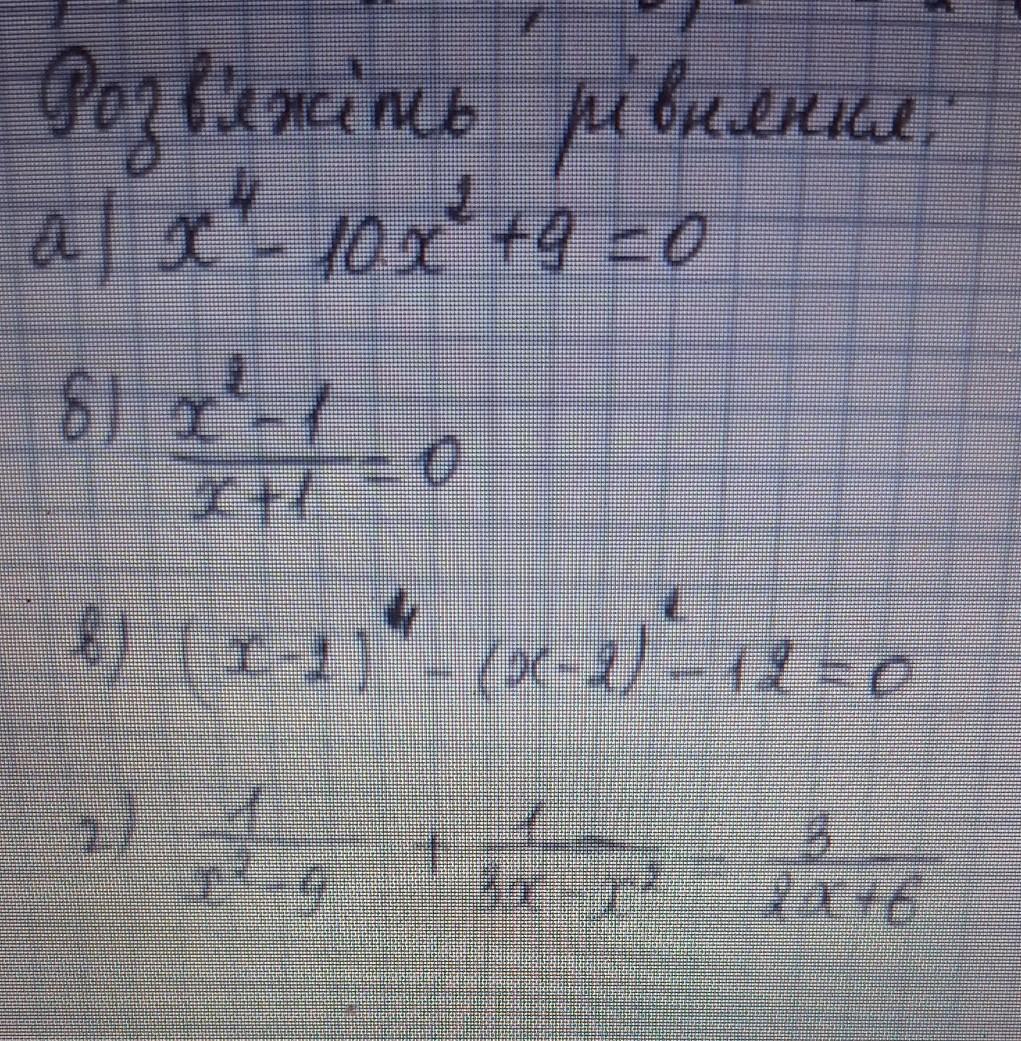 Розв'яжіть рівняння:
а) x⁴ - 10x² + 9 = 0
б) (x² - 1)/(x + 1) = 0
в) (x - 2)⁴ - (x - 2)² - 12 = 0
г) 1/(x² - 9) + 1/(3x - x²) = 3/(2x + 6)